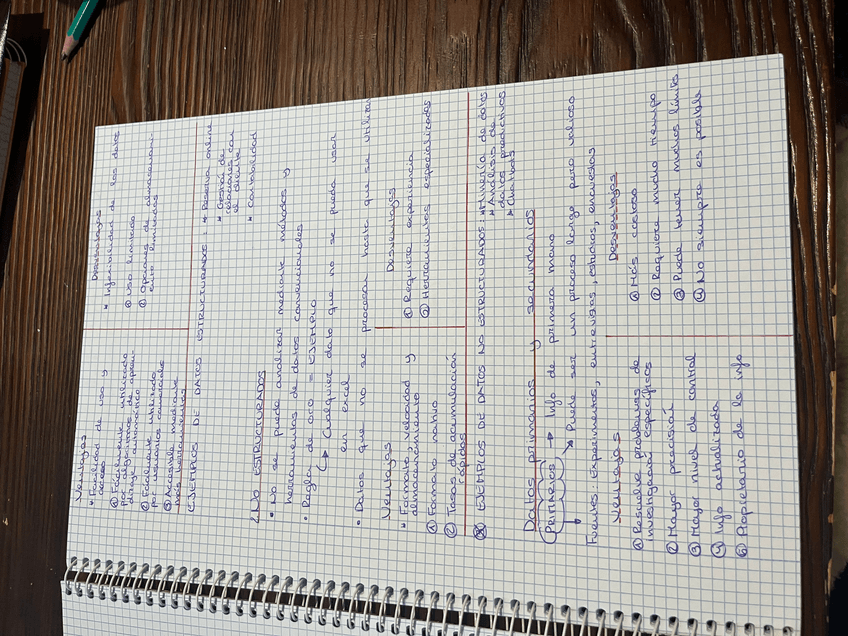 Ventajas
• Facilidad de uso y
acceso
① Fácilmente utilizado
por algoritmos de apren-
dizaje automático
② Fácilmente utilizado
por usuarios comerciales
③ Accesible mediante
más herramientas
Desventajas
• Inflexibilidad de los datos
① Uso limitado
② Opciones de almacenami-
ento limitadas
EJEMPLOS DE DATOS ESTRUCTURADOS: * Reserva online
* Gestión de
relaciones con
el cliente
* Contabilidad
2. NO ESTRUCTURADOS
• No se puede analizar mediante métodos y
herramientas de datos convencionales
• Regla de oro = EJEMPLO
↳ Cualquier dato que no se pueda usar
en excel
• Datos que no se procesan hasta que se utilizan
Ventajas
• Formato, velocidad y
almacenamiento
① Formato nativo
② Tasas de acumulación
rápidas
Desventajas
① Requiere experiencia
② Herramientas especializadas
⊗ EJEMPLOS DE DATOS NO ESTRUCTURADOS: * Minería de datos
* Análisis de
datos predictivos
* Chatbots
Datos primarios y secundarios
Primarios → Info de primera mano
↘ Puede ser un proceso largo pero valioso
Fuentes: Experimentos, entrevistas, estudios, encuestas
Ventajas
① Resuelve problemas de
investigación específicos
② Mayor precisión
③ Mayor nivel de control
④ Info actualizada
⑤ Propietario de la info
Desventajas
① Más costoso
② Requiere mucho tiempo
③ Puede tener muchos límites
④ No siempre es posible